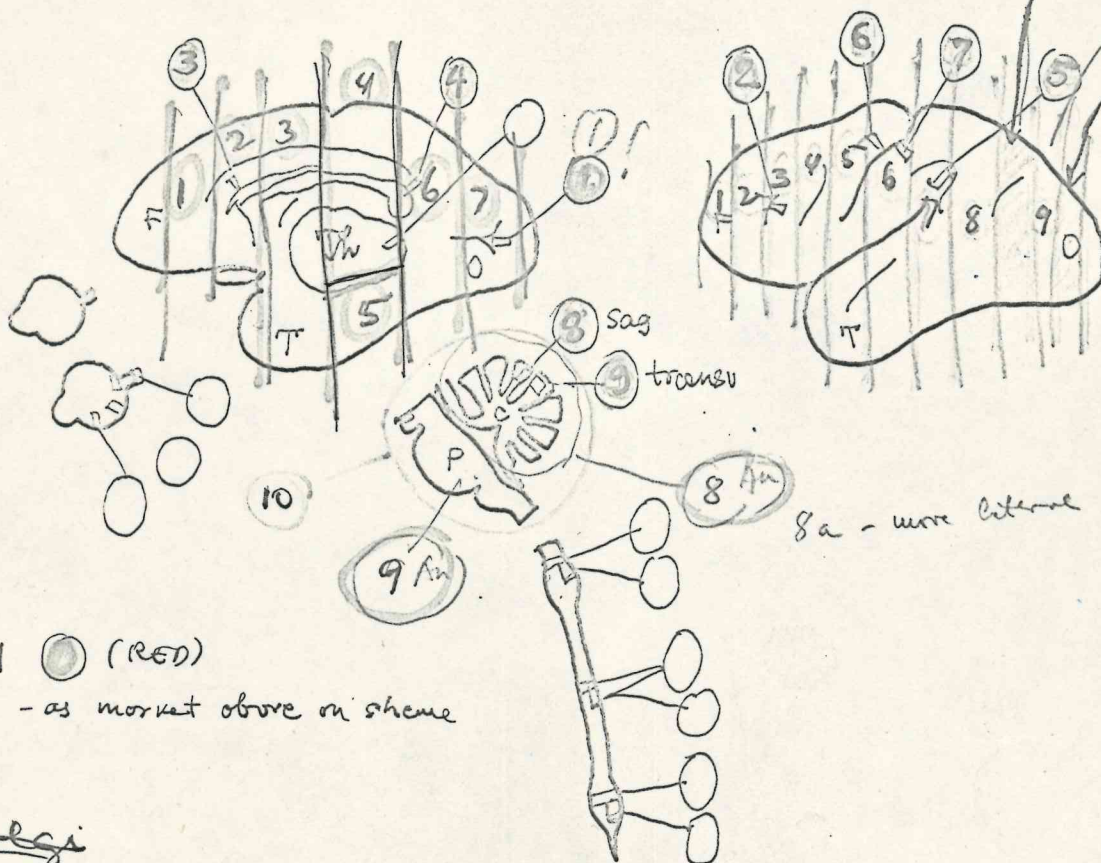 3 4 4
2 3
1 6 7
Th O
5
T
6
2 7 5
1 2 3 4 5 6 7 8 9 O
T
8 sag
9 transv
P
10
8 An
9 An
8a - more
(RED)
- as market obove on sheme